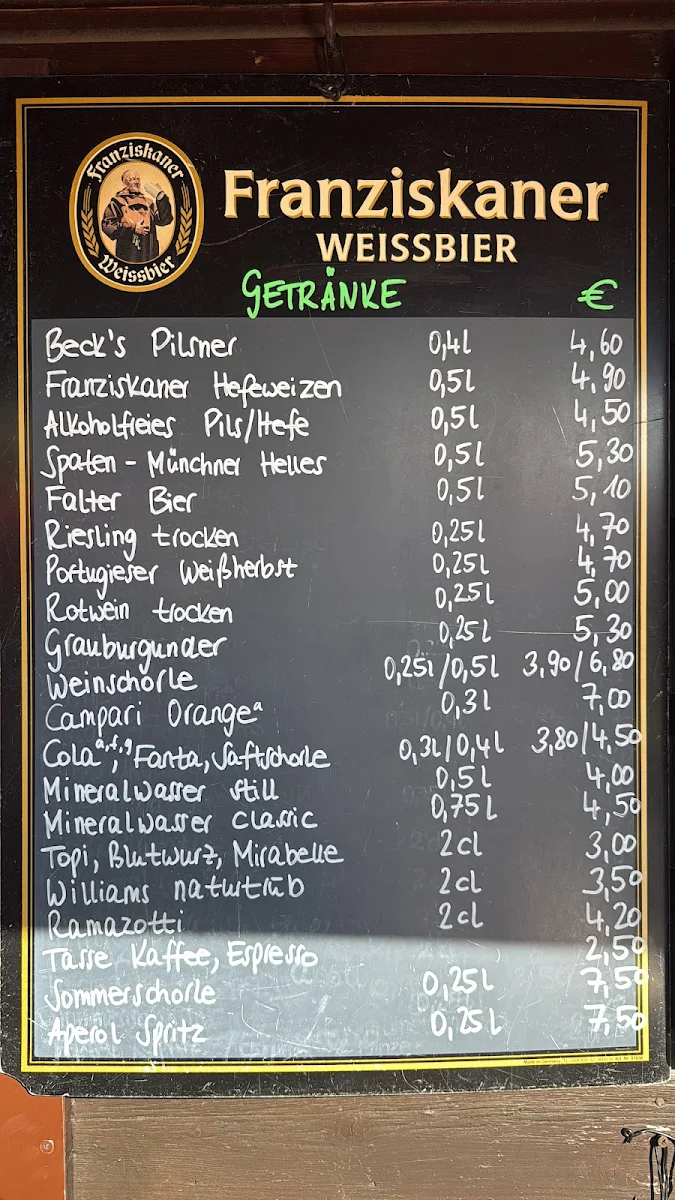 Franziskaner
Weissbier
Franziskaner
WEISSBIER
GETRÄNKE €
Beck's Pilsner 0,4l 4,60
Franziskaner Hefeweizen 0,5l 4,90
Alkoholfreies Pils/Hefe 0,5l 4,50
Spaten - Münchner Helles 0,5l 5,30
Falter Bier 0,5l 5,10
Riesling trocken 0,25l 4,70
Portugieser Weißherbst 0,25l 4,70
Rotwein trocken 0,25l 5,00
Grauburgunder 0,25l 5,30
Weinschorle 0,25l/0,5l 3,90/6,80
Campari Orangeᵃ 0,3l 7,00
Cola, Fanta, Saftschorle 0,3l/0,4l 3,80/4,50
Mineralwasser still 0,5l 4,00
Mineralwasser classic 0,75l 4,50
Topi, Blutwurz, Mirabelle 2cl 3,00
Williams naturtrüb 2cl 3,50
Ramazotti 2cl 4,20
Tasse Kaffee, Espresso 2,50
Sommerschorle 0,25l 7,50
Aperol Spritz 0,25l 7,50